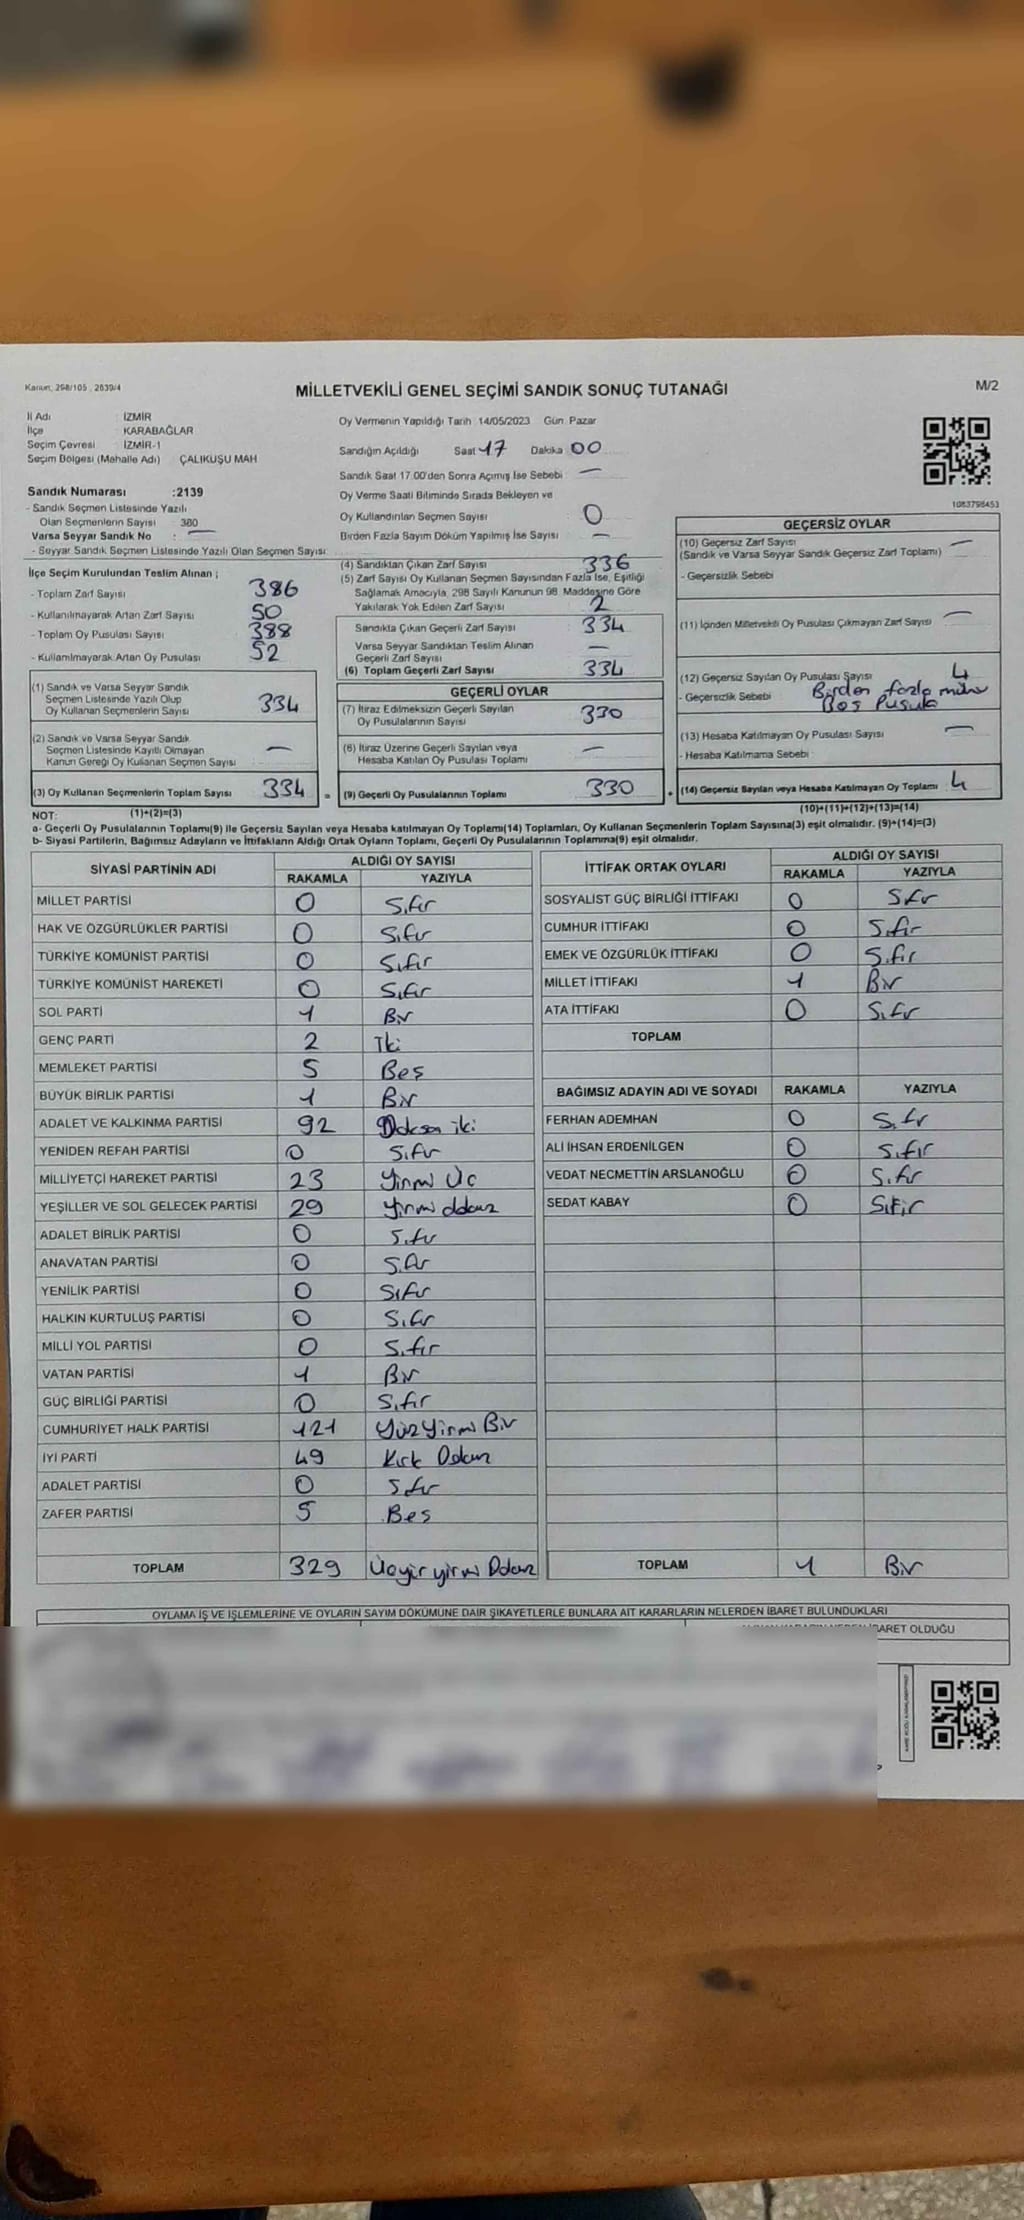 Kanun: 298/105 , 2839/4
MİLLETVEKİLİ GENEL SEÇİMİ SANDIK SONUÇ TUTANAĞI
M/2
İl Adı : İZMİR
İlçe : KARABAĞLAR
Seçim Çevresi : İZMİR-1
Seçim Bölgesi (Mahalle Adı) ÇALIKUŞU MAH
Sandık Numarası :2139
- Sandık Seçmen Listesinde Yazılı
Olan Seçmenlerin Sayısı 380
Varsa Seyyar Sandık No : —
- Seyyar Sandık Seçmen Listesinde Yazılı Olan Seçmen Sayısı:
Oy Vermenin Yapıldığı Tarih 14/05/2023 Gün: Pazar
Sandığın Açıldığı Saat 17 Dakika 00
Sandık Saat 17.00'den Sonra Açımış İse Sebebi —
Oy Verme Saati Bitiminde Sırada Bekleyen ve
Oy Kullandırılan Seçmen Sayısı 0
Birden Fazla Sayım Döküm Yapılmış İse Sayısı —
1083798453
İlçe Seçim Kurulundan Teslim Alınan ;
- Toplam Zarf Sayısı 386
- Kullanılmayarak Artan Zarf Sayısı 50
- Toplam Oy Pusulası Sayısı 388
- Kullanılmayarak Artan Oy Pusulası 52
(1) Sandık ve Varsa Seyyar Sandık
Seçmen Listesinde Yazılı Olup
Oy Kullanan Seçmenlerin Sayısı 334
(2) Sandık ve Varsa Seyyar Sandık
Seçmen Listesinde Kayıtlı Olmayan
Kanun Gereği Oy Kullanan Seçmen Sayısı —
(3) Oy Kullanan Seçmenlerin Toplam Sayısı 334 =
(4) Sandıktan Çıkan Zarf Sayısı 336
(5) Zarf Sayısı Oy Kullanan Seçmen Sayısından Fazla İse, Eşitliği
Sağlamak Amacıyla, 298 Sayılı Kanunun 98. Maddesine Göre
Yakılarak Yok Edilen Zarf Sayısı 2
Sandıkta Çıkan Geçerli Zarf Sayısı 334
Varsa Seyyar Sandıktan Teslim Alınan
Geçerli Zarf Sayısı —
(6) Toplam Geçerli Zarf Sayısı 334
GEÇERLİ OYLAR
(7) İtiraz Edilmeksizin Geçerli Sayılan
Oy Pusulalarının Sayısı 330
(8) İtiraz Üzerine Geçerli Sayılan veya
Hesaba Katılan Oy Pusulası Toplamı —
(9) Geçerli Oy Pusulalarının Toplamı 330 +
GEÇERSİZ OYLAR
(10) Geçersiz Zarf Sayısı —
(Sandık ve Varsa Seyyar Sandık Geçersiz Zarf Toplamı)
- Geçersizlik Sebebi
(11) İçinden Milletvekili Oy Pusulası Çıkmayan Zarf Sayısı —
(12) Geçersiz Sayılan Oy Pusulası Sayısı 4
- Geçersizlik Sebebi Birden fazla mühür
Boş Pusula
(13) Hesaba Katılmayan Oy Pusulası Sayısı —
- Hesaba Katılmama Sebebi
(14) Geçersiz Sayılan veya Hesaba Katılmayan Oy Toplamı 4
NOT: (1)+(2)=(3) (10)+(11)+(12)+(13)=(14)
a- Geçerli Oy Pusulalarının Toplamı(9) ile Geçersiz Sayılan veya Hesaba katılmayan Oy Toplamı(14) Toplamları, Oy Kullanan Seçmenlerin Toplam Sayısına(3) eşit olmalıdır. (9)+(14)=(3)
b- Siyasi Partilerin, Bağımsız Adayların ve İttifakların Aldığı Ortak Oyların Toplamı, Geçerli Oy Pusulalarının Toplamına(9) eşit olmalıdır.
SİYASİ PARTİNİN ADI ALDIĞI OY SAYISI
RAKAMLA YAZIYLA
MİLLET PARTİSİ 0 Sıfır
HAK VE ÖZGÜRLÜKLER PARTİSİ 0 Sıfır
TÜRKİYE KOMÜNİST PARTİSİ 0 Sıfır
TÜRKİYE KOMÜNİST HAREKETİ 0 Sıfır
SOL PARTİ 1 Bir
GENÇ PARTİ 2 İki
MEMLEKET PARTİSİ 5 Beş
BÜYÜK BİRLİK PARTİSİ 1 Bir
ADALET VE KALKINMA PARTİSİ 92 Doksan iki
YENİDEN REFAH PARTİSİ 0 Sıfır
MİLLİYETÇİ HAREKET PARTİSİ 23 Yirmi Üç
YEŞİLLER VE SOL GELECEK PARTİSİ 29 Yirmi dokuz
ADALET BİRLİK PARTİSİ 0 Sıfır
ANAVATAN PARTİSİ 0 Sıfır
YENİLİK PARTİSİ 0 Sıfır
HALKIN KURTULUŞ PARTİSİ 0 Sıfır
MİLLİ YOL PARTİSİ 0 Sıfır
VATAN PARTİSİ 1 Bir
GÜÇ BİRLİĞİ PARTİSİ 0 Sıfır
CUMHURİYET HALK PARTİSİ 121 Yüz Yirmi Bir
İYİ PARTİ 49 Kırk Dokuz
ADALET PARTİSİ 0 Sıfır
ZAFER PARTİSİ 5 Beş
TOPLAM 329 Üçyüz yirmi Dokuz
İTTİFAK ORTAK OYLARI ALDIĞI OY SAYISI
RAKAMLA YAZIYLA
SOSYALİST GÜÇ BİRLİĞİ İTTİFAKI 0 Sıfır
CUMHUR İTTİFAKI 0 Sıfır
EMEK VE ÖZGÜRLÜK İTTİFAKI 0 Sıfır
MİLLET İTTİFAKI 1 Bir
ATA İTTİFAKI 0 Sıfır
TOPLAM
BAĞIMSIZ ADAYIN ADI VE SOYADI RAKAMLA YAZIYLA
FERHAN ADEMHAN 0 Sıfır
ALİ İHSAN ERDENİLGEN 0 Sıfır
VEDAT NECMETTİN ARSLANOĞLU 0 Sıfır
SEDAT KABAY 0 Sıfır
TOPLAM 1 Bir
OYLAMA İŞ VE İŞLEMLERİNE VE OYLARIN SAYIM DÖKÜMÜNE DAİR ŞİKAYETLERLE BUNLARA AİT KARARLARIN NELERDEN İBARET BULUNDUKLARI
İBARET OLDUĞU